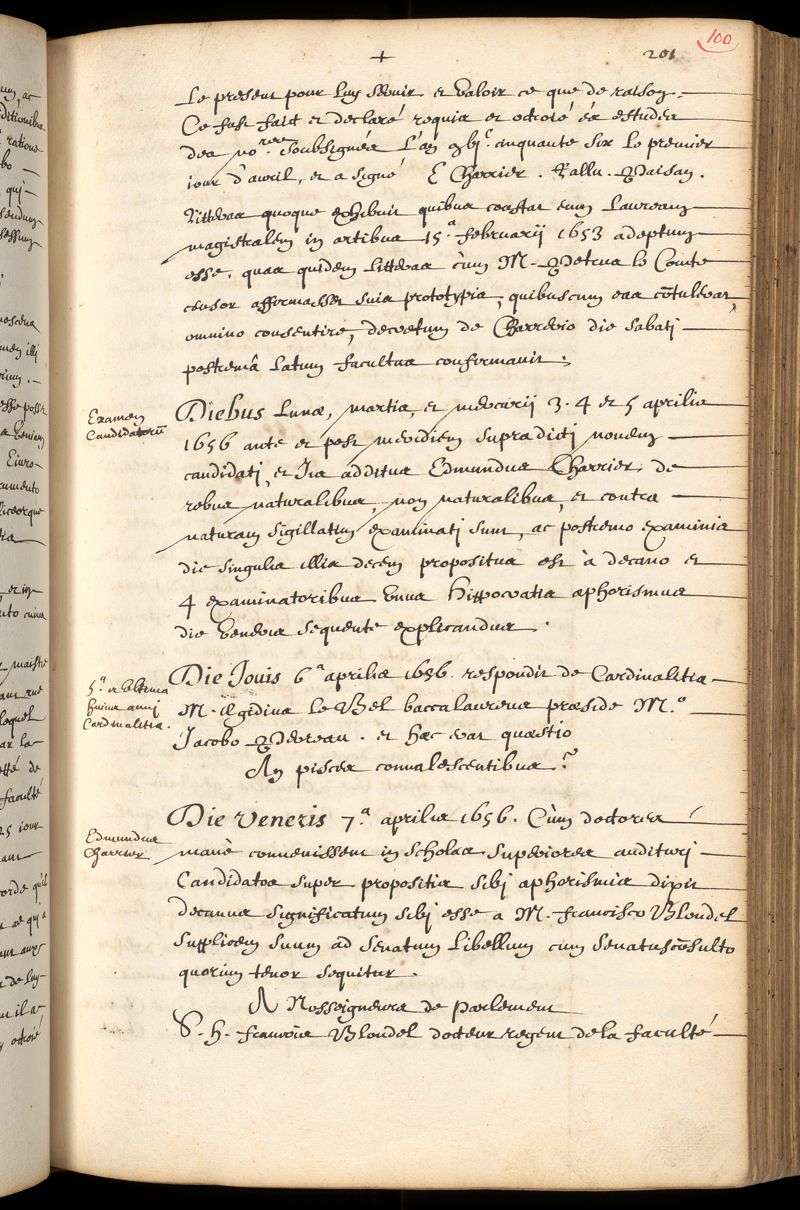 + 201 100
Le present pour luy servir et valoir ce que de raison.
Ce fut faict et declaré requis et octroié és estudes
des no.res soubsignés L'an gbjc. cinquante six le premier
jour d'avril, et a signé E Charrier. Rallu. Vaisan.
Litteras quoque exhibuit quibus constat eum Lauream
magistralem in artibus 15.a februarij 1653 adeptum
esse. quas quidem litteras cùm M. Petrus le Conte
censor affirmasset suis prototypis, quibuscum eas cõtulerat,
omnino consentire, decretum de Charrerio die sabati
postremâ latum facultas confirmavit.
Examen
Candidatorũ
Diebus Lunæ, martis, et mercurij 3. 4 et 5 aprilis
1656 ante et post meridiem supradicti novem
candidati, et Jis additus Edmundus Charrier, de
rebus naturalibus, non naturalibus, et contra
naturam sigillatim examinati sunt, ac postremo examinis
die singulis illis decem propositus est à decano et
4 examinatoribus unus Hippocratis aphorismus
die veneris sequente explicandus.
5.a et ultima
huius anni
Cardinalitia.
Die Jovis 6a aprilis 1656. respondit de Cardinalitia
M. Ægidius le Bel baccalaureus præside M.o
Jacobo Perreau. et hæc erat quæstio
An pisces convalescentibus?
Edmundus
Charrier
Die Veneris 7.a aprilis 1656. Cùm doctores
manè convenissent in scholas superiores audituri
Candidatos super propositis sibj aphorismis dixit
decanus significatum sibj esse a M. francisco Blondel
supplicem suum ad senatum libellum cum senatuscõsulto
quorum tenor sequitur.
A Nosseigneurs de parlement
S. h. francois Blondel docteur regent de la faculté